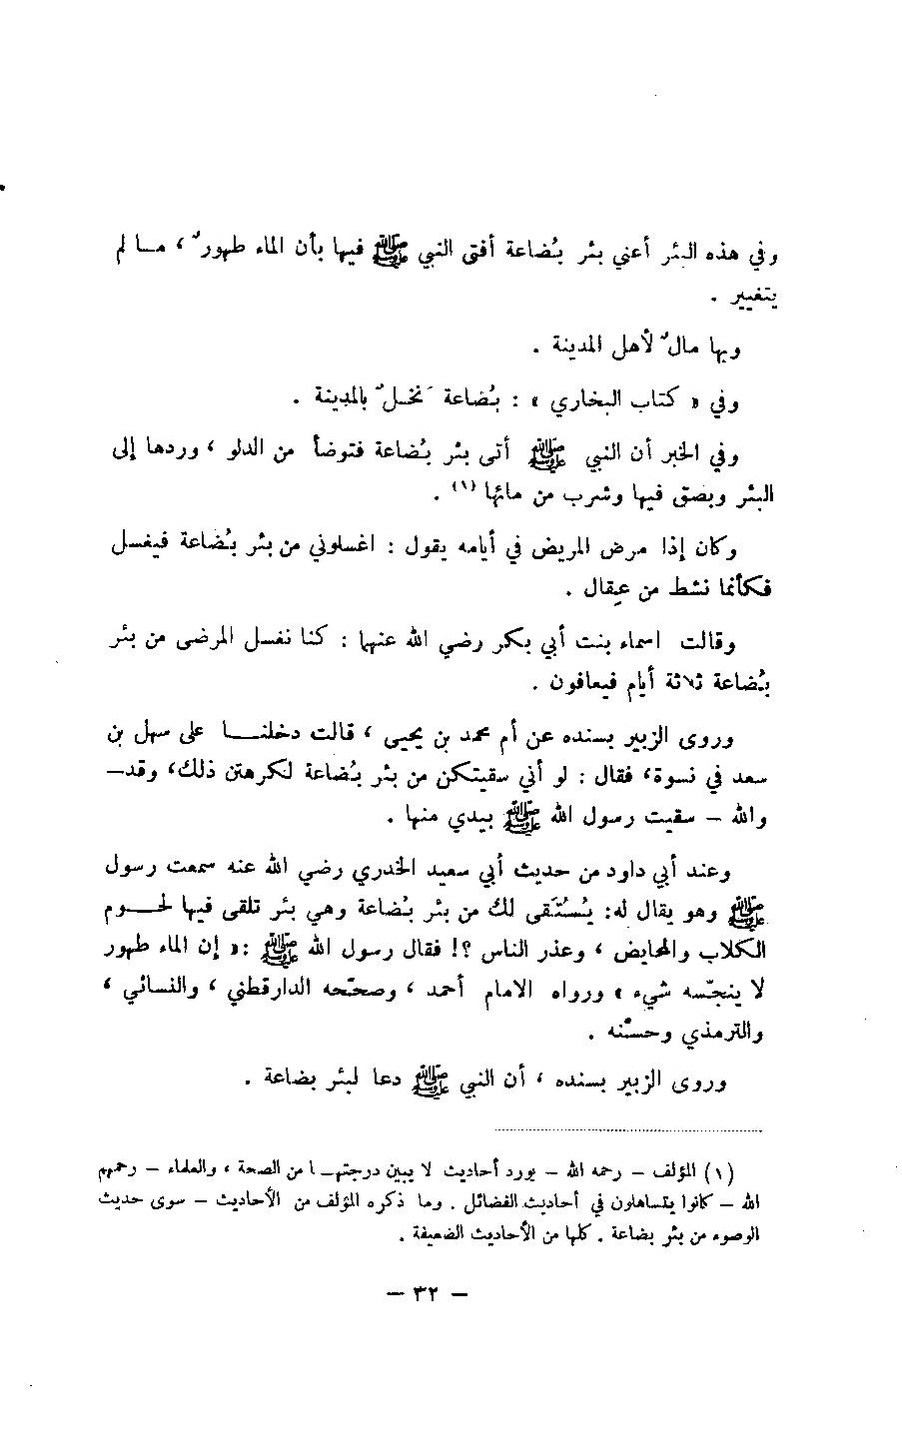 وفي هذه البئر أعني بئر بُضاعة أفتى النبي ﷺ فيها بأن الماء طهورٌ ، مـا لم
يتغيير .
وبها مالٌ لأهل المدينة .
وفي « كتاب البخاري » : بُضاعة نَخـلٌ بالمدينة .
وفي الخبر أن النبي ﷺ أتى بئر بُضاعة فتوضأ من الدلو ، وردها إلى
البئر وبصق فيها وشرب من مائها (١) .
وكان إذا مرض المريض في أيامه يقول : اغسلوني من بئر بُضاعة فيغسل
فكأنما نشط من عِقال .
وقالت اسماء بنت أبي بكر رضي الله عنهما : كنا نغسل المرضى من بئر
بُضاعة ثلاثة أيام فيعافون .
وروى الزبير بسنده عن أم محمد بن يحيى ، قالت دخلنـــا على سهل بن
سعد في نسوة، فقال : لو أني سقيتكن من بئر بُضاعة لكرهتن ذلك، وقد–
والله – سقيت رسول الله ﷺ بيدي منها .
وعند أبي داود من حديث أبي سعيد الخدري رضي الله عنه سمعت رسول
ﷺ وهو يقال له: يُسْتَقى لك من بئر بُضاعة وهي بئر تلقى فيها لحــوم
الكلاب والمحايض ، وعذر الناس ؟! فقال رسول الله ﷺ :« إن الماء طهور
لا ينجّسه شيء » ورواه الامام أحمد ، وصحّحه الدارقطني ، والنسائي ،
والترمذي وحسّنه .
وروى الزبير بسنده ، أن النبي ﷺ دعا لبئر بضاعة .
(١) المؤلف – رحمه الله – يورد أحاديث لا يبين درجتهـا من الصحة ، والعلماء – رحمهم
الله – كانوا يتساهلون في أحاديث الفضائل . وما ذكره المؤلف من الأحاديث – سوى حديث
الوضوء من بئر بضاعة . كلها من الأحاديث الضعيفة .
– ٣٢ –